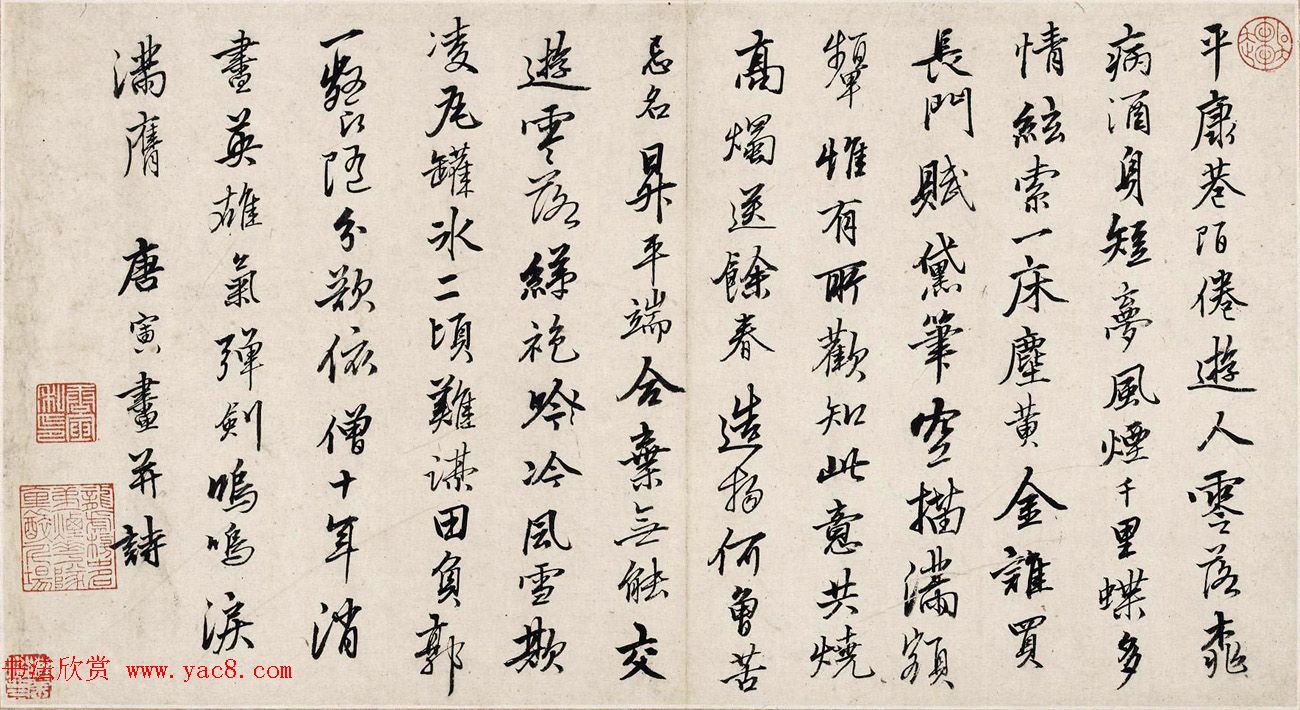 平康巷陌倦遊人零落桃
病酒身短夢風煙千里蝶多
情絃索一床塵黃金誰買
長門賦黛筆空描滿額
顰惟有所歡知此意共燒
高燭送餘春造物何曾苦
忌名昇平端合棄無能交
遊零落綈袍吟冷風雪欺
凌瓦罐冰二頃難謀田負郭
一餐隨分欲依僧十年消
盡英雄氣彈劍嗚嗚淚
滿膺 唐寅畫并詩
唐寅私印
书法欣赏 www.yac8.com